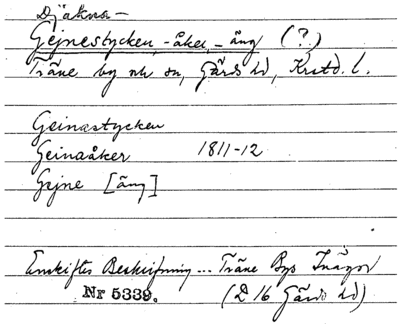 Djäkna-
Gejnestycken, -åker, -äng (?)
Träne by och sn, Gärds hd, Krstd. l.
Geinastycken
Geinaåker 1811-12
Gejne [äng]
Enskiftes Beskrifning... Träne Bys Inägor
Nr 5339. (L 16 Gärds hd)